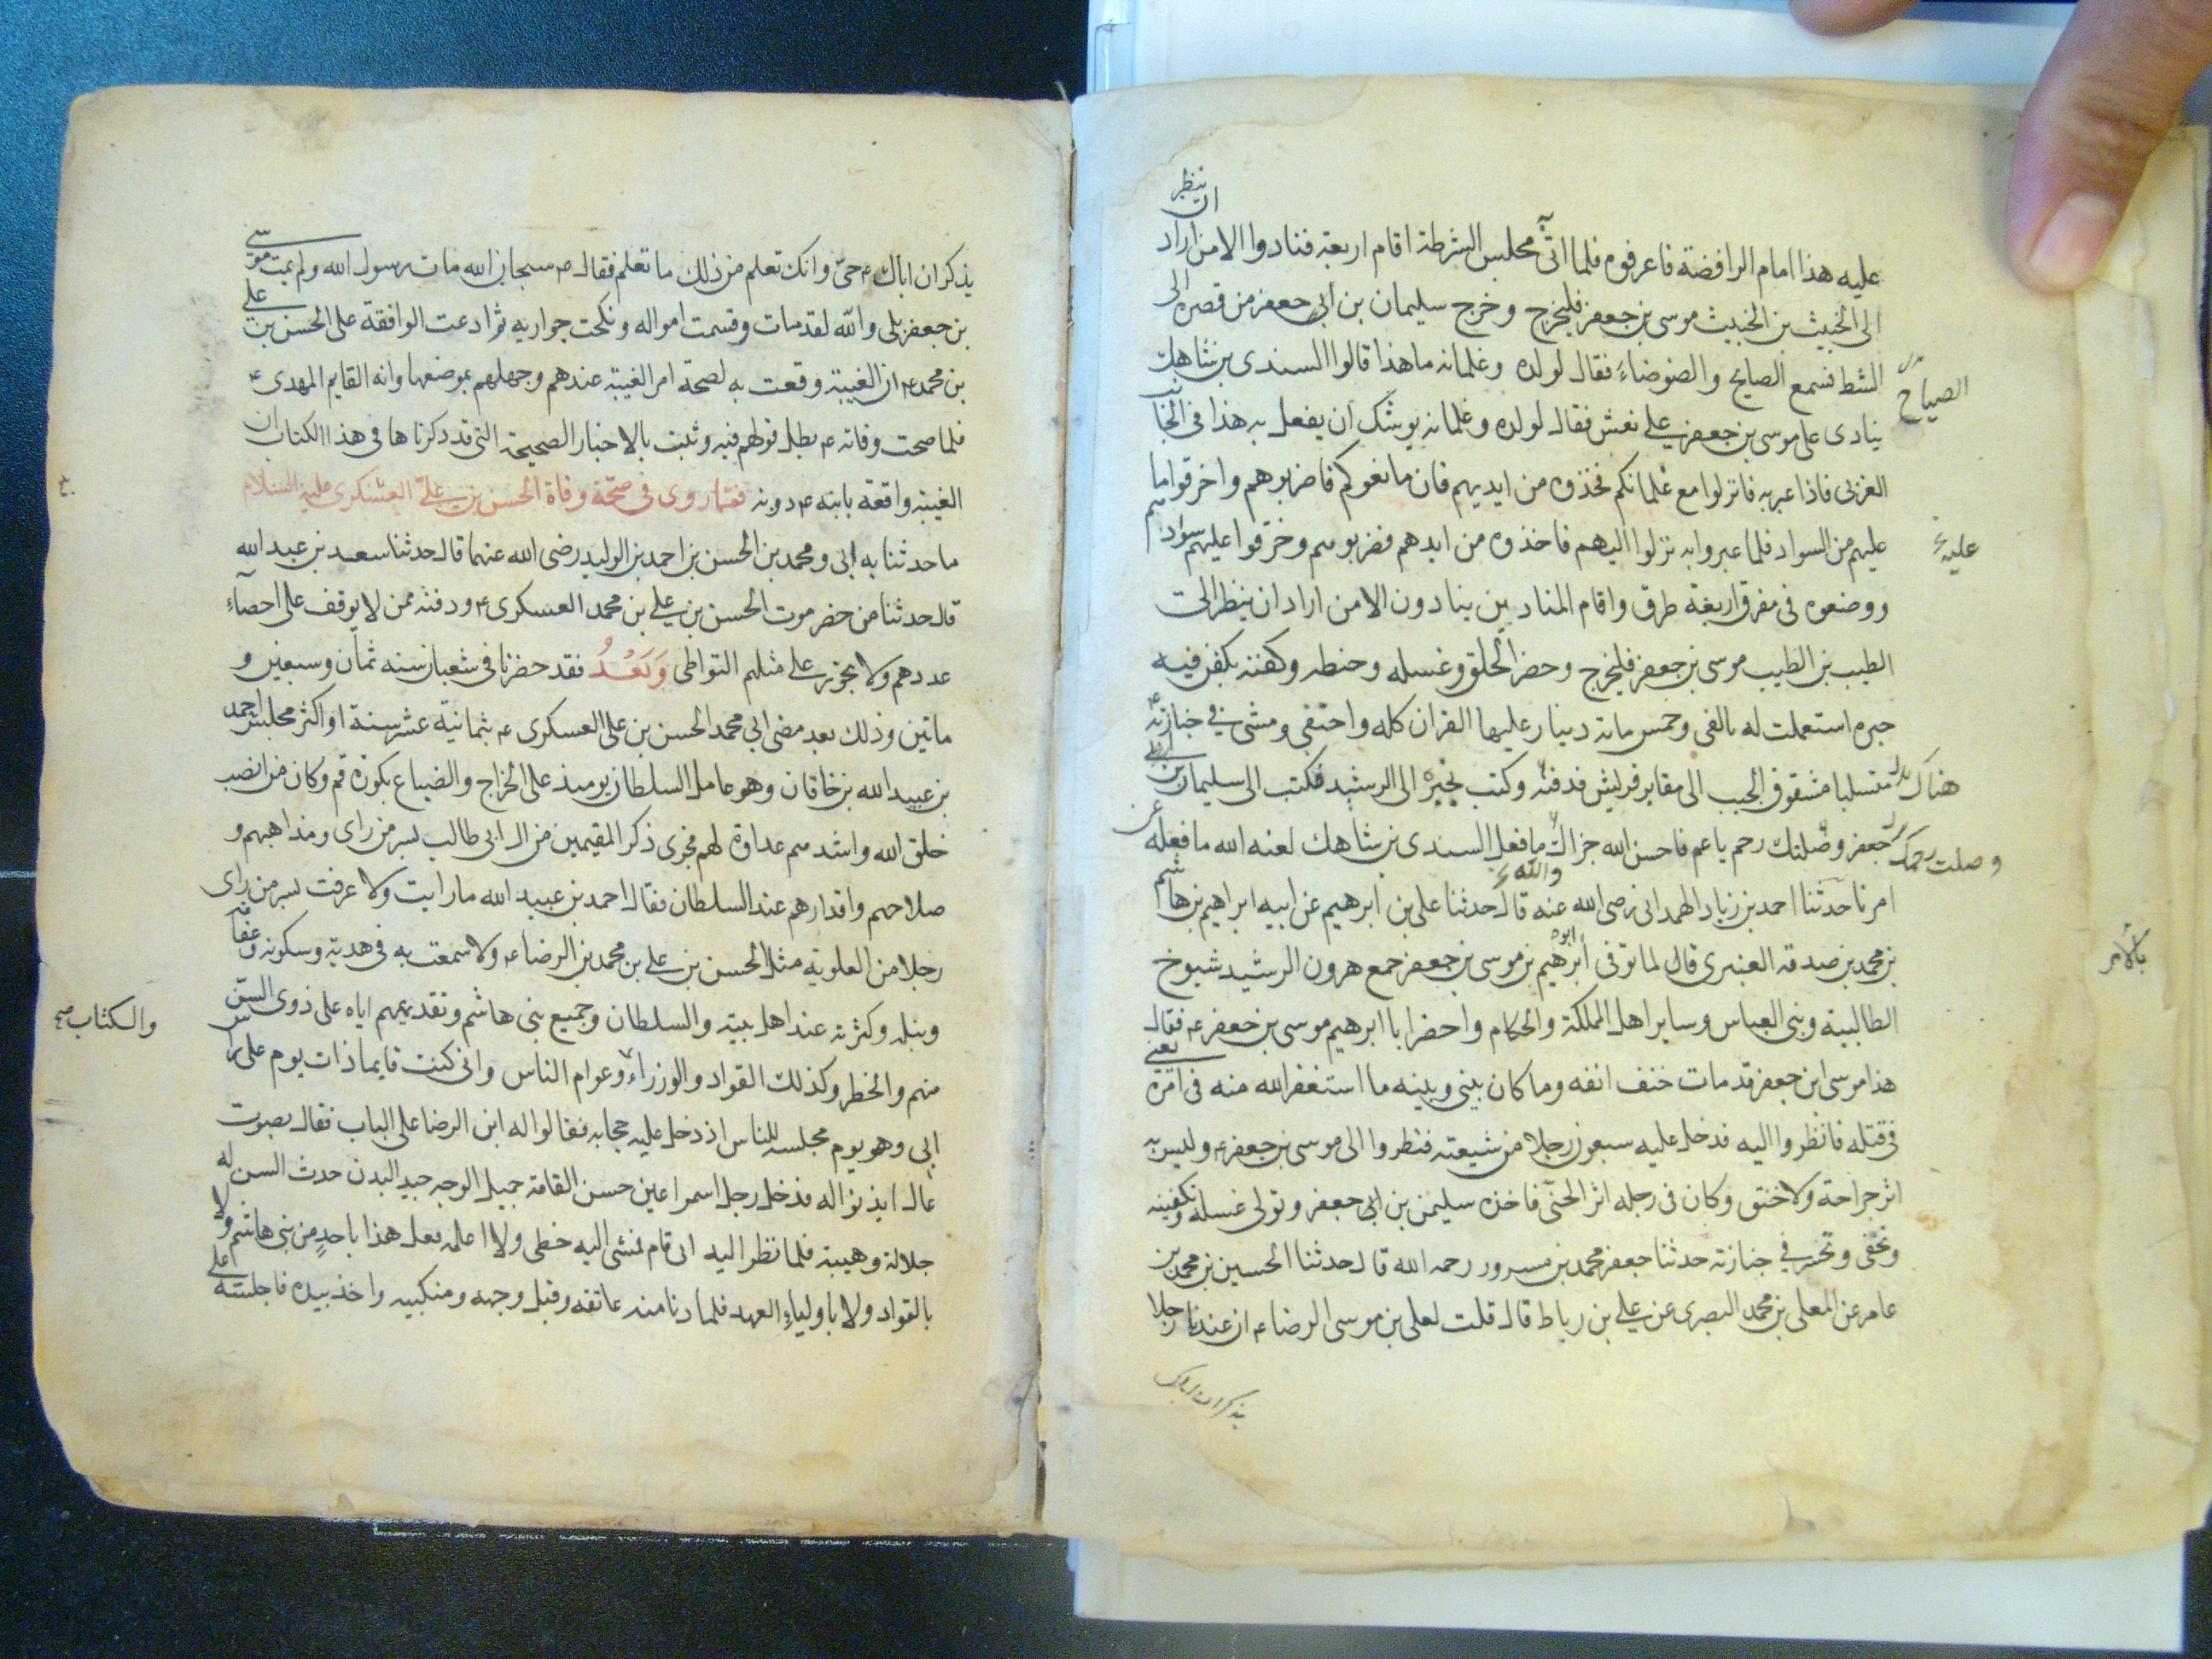 ان ينظر
عليه هذا امام الرافضة فاعرفوه فلما اتى به مجلس الشرطة اقام اربعة فنادوا الا من اراد
الى الخبيث بن الخبيث موسى بن جعفر فليخرج وخرج سليمان بن ابي جعفر من قصره الى
الشط فسمع الصايح والضوضاء فقال لولده وغلمانه ما هذا قالوا السندى بن شاهك
الصياح
ينادى على موسى بن جعفر على نعش فقال لولده وغلمانه يوشك ان يفعل به هذا في الجانب
الغربى فاذا عبر به فانزلوا مع غلمانكم فخذوه من ايديهم فان مانعوكم فاضربوهم واخرقوا ما
عليهم من السواد فلما عبروا به نزلوا اليهم فاخذوه من ايدهم فضربوهم وخرقوا عليهم سوادهم
عليه
ووضعوه في مفرق اربعة طرق واقام المنادين ينادون الا من اراد ان ينظر الى
الطيب بن الطيب موسى بن جعفر فليخرج وحضر الخلق وغسله وحنطه وكفنه بكفن فيه
حبره استعملت له بالفى وخمس مائة دينار عليها القران كله واحتفى ومشى في جنازته
متسلبا مشقوق الجيب الى مقابر قريش فدفنه وكتب بخبره الى الرشيد فكتب الى سليمان بن ابي
جعفر وصلتك رحم يا عم فاحسن الله جزاك ما فعل السندى بن شاهك لعنه الله ما فعله عن
وصلت رحمك
والله
امرنا حدثنا احمد بن زياد الهمدانى رضى الله عنه قال حدثنا على بن ابرهيم عن ابيه ابراهيم بن هاشم
بن محمد بن صدقة العنبرى قال لما توفى ابوه ابرهيم بن موسى بن جعفر جمع هرون الرشيد شيوخ
بالامر
الطالبية وبنى العباس وساير اهل المملكة والحكام واحضر ابا ابرهيم موسى بن جعفر ع فقال
هذا موسى ابن جعفر قد مات حتف انفه وما كان بينى وبينه ما استغفر الله منه في امره يعنى
في قتله فانظروا اليه فدخل عليه سبعون رجلا من شيعته فنظروا الى موسى بن جعفر ع وليس به
اثر جراحة ولا خنق وكان في رجله اثر الحنى فاخذه سليمن بن ابى جعفر وتولى غسله وتكفينه
وتحفى وتحسر في جنازته حدثنا جعفر محمد بن مسرور رحمه الله قال حدثنا الحسين بن محمد بن
عامر عن المعلى بن محمد البصرى عن على بن رباط قال قلت لعلى بن موسى الرضا ع ان عندنا رجلا
يذكر ان اباك
يذكر ان اباك ع حى وانك تعلم من ذلك ما تعلم فقال ع سبحان الله مات رسول الله ولم يمت موسى
بن جعفر بلى والله لقد مات وقسمت امواله ونكحت جواريه ثم ادعت الواقفة على الحسن بن على
بن محمد ع ان الغيبة وقعت به لصحة امر الغيبة عندهم وجهلهم بموضعها وانه القايم المهدى ع
فلما صحت وفاته ع بطل قولهم فيه وثبت بالاخبار الصحيحة التى قد ذكرناها في هذا الكتاب ان
الغيبة واقعة بابنه ع دونه فمما روى في صحة وفاة الحسن بن على العسكرى عليه السلام
ما حدثنا به ابى ومحمد بن الحسن بن احمد بن الوليد رضى الله عنهما قال حدثنا سعد بن عبد الله
قال حدثنا من حضر موت الحسن بن على بن محمد العسكرى ع ودفنه ممن لا يوقف على احصاء
عددهم ولا يجوز على مثلهم التواطى وبعد فقد حضرنا في شعبان سنه ثمان وسبعين و
ماتين وذلك بعد مضى ابى محمد الحسن بن على العسكرى ع بثمانية عشر سنة او اكثر مجلس احمد
بن عبيد الله بن خاقان وهو عامل السلطان يومئذ على الخراج والضياع بكورة قم وكان من انصب
خلق الله واشدهم عداوة لهم فجرى ذكر المقيمين من ال ابى طالب بسر من راى ومذاهبهم و
صلاحهم واقدارهم عند السلطان فقال احمد بن عبيد الله ما رايت ولا عرفت بسر من راى
رجلا من العلوية مثل الحسن بن على بن محمد بن الرضا ع ولا سمعت به في هديه وسكونه وعفافه
ونبله وكثرته عند اهل بيته والسلطان وجميع بنى هاشم وتقديمهم اياه على ذوى السن
منهم والخطر وكذلك القواد والوزراء وعوام الناس وانى كنت قايما ذات يوم على راس
والكتاب صح
ابى وهو يوم مجلسه للناس اذ دخل عليه حجابه فقالوا له ابن الرضا على الباب فقال بصوت
عال ايذنوا له فدخل رجل اسمر اعين حسن القامة جميل الوجه جيد البدن حدث السن له
جلالة وهيبة فلما نظر اليه ابى قام فمشى اليه خطى ولا اعلمه فعل هذا باحد من بنى هاشم ولا
بالقواد ولا باولياء العهد فلما دنا منه عانقه وقبل وجهه ومنكبيه واخذ بيده فاجلسه على